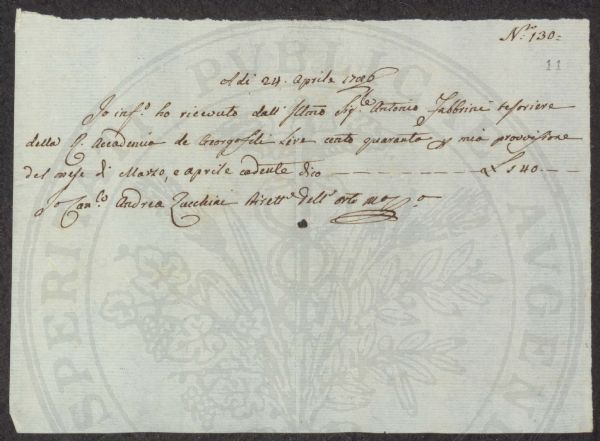 N.º 130=
11
Adi 24. Aprile 1786
Io inf.º ho ricevuto dall' Illmo Sig.re Antonio Fabbrini tesoriere
della R. Accademia de Georgofili Lire cento quaranta p mia provvisione
del mese di Marzo, e aprile cadente dico — — — — — — £ 140. —
Io Can.co Andrea Zucchini Dirett.e dell' orto m.o p.o
PUBLIC
SPERI
AUGEN